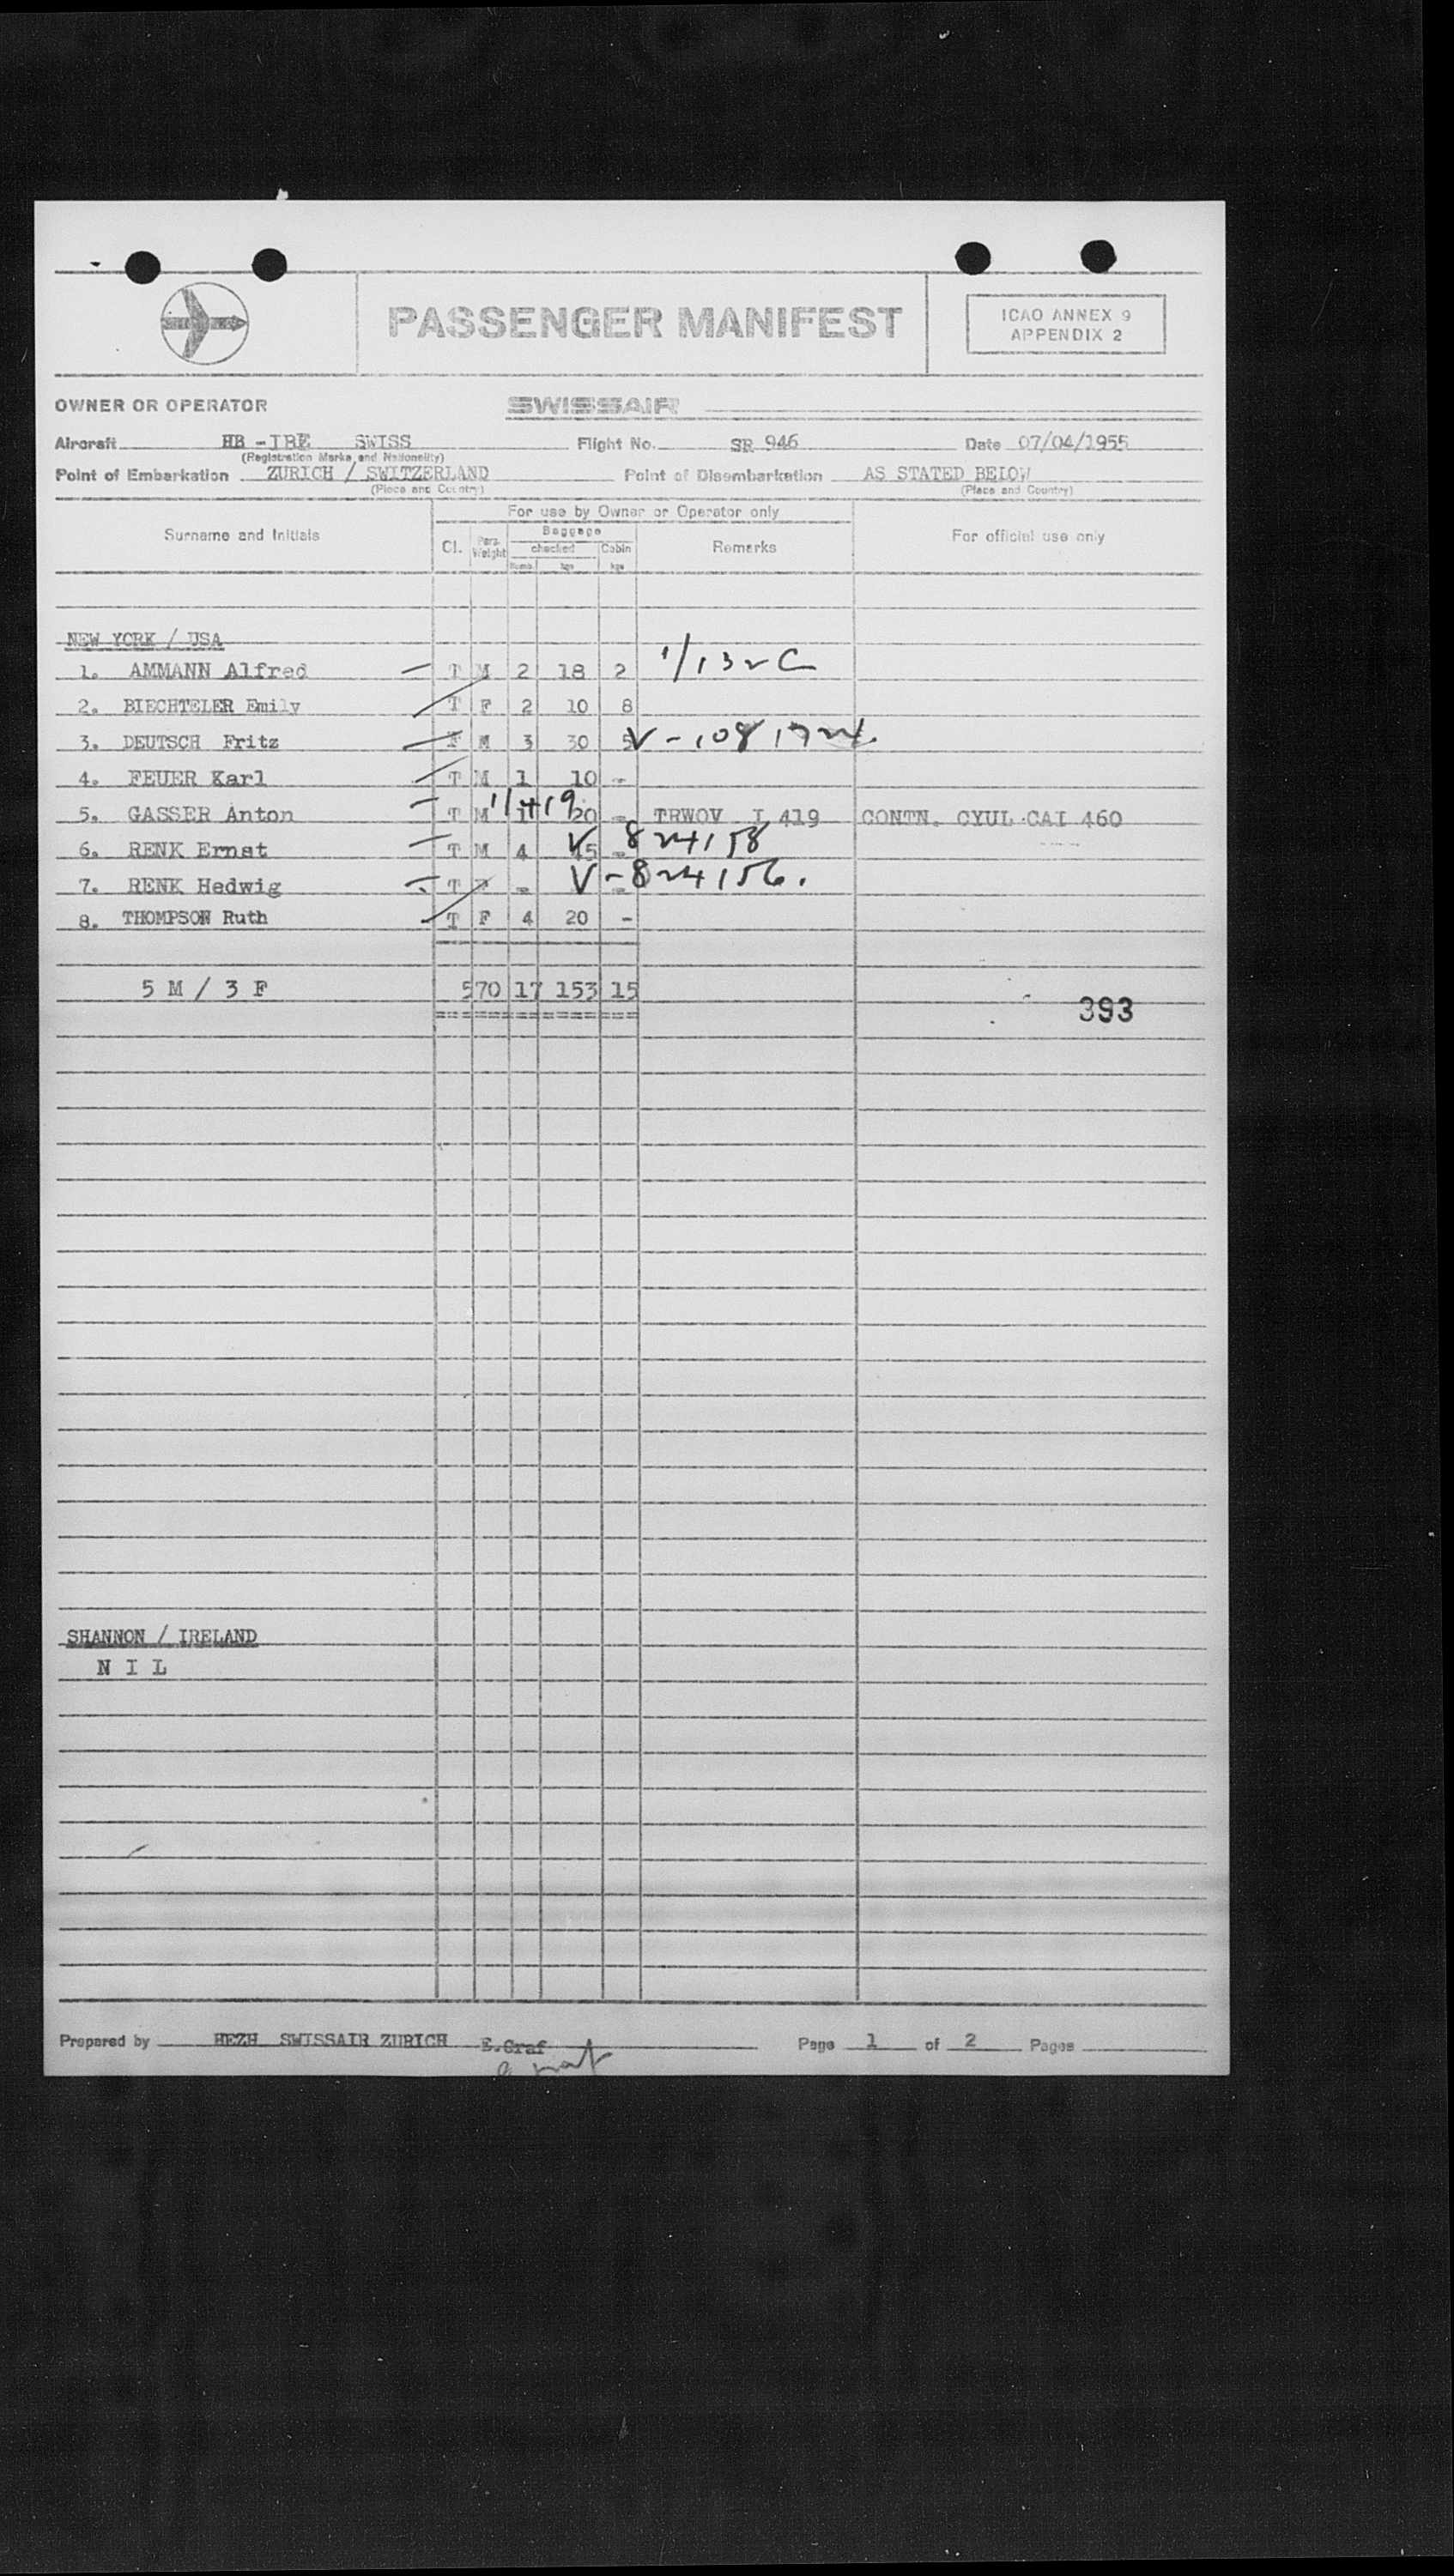 PASSENGER MANIFEST
ICAO ANNEX 9
APPENDIX 2
OWNER OR OPERATOR SWISSAIR
Aircraft HB - IBE SWISS Flight No. SR 946 Date 07/04/1955
(Registration Marks and Nationality)
Point of Embarkation ZURICH / SWITZERLAND Point of Disembarkation AS STATED BELOW
(Place and Country) (Place and Country)
For use by Owner or Operator only
Surname and Initials Cl. Pers. Weight Baggage Remarks For official use only
checked Cabin
Numb. kgs kgs
NEW YORK / USA
1. AMMANN Alfred T M 2 18 2 1/132C
2. BIECHTELER Emily T F 2 10 8
3. DEUTSCH Fritz F M 3 30 5 V-1081724.
4. FEUER Karl T M 1 10 -
5. GASSER Anton T M 1/419 1 20 - TRWOV I 419 CONTN. CYUL CAI 460
6. RENK Ernst T M 4 45 - V 824158
7. RENK Hedwig T F - - V-824156.
8. THOMPSON Ruth T F 4 20 -
5 M / 3 F 570 17 153 15
393
SHANNON / IRELAND
N I L
Prepared by HEZH SWISSAIR ZURICH E.Graf Page 1 of 2 Pages